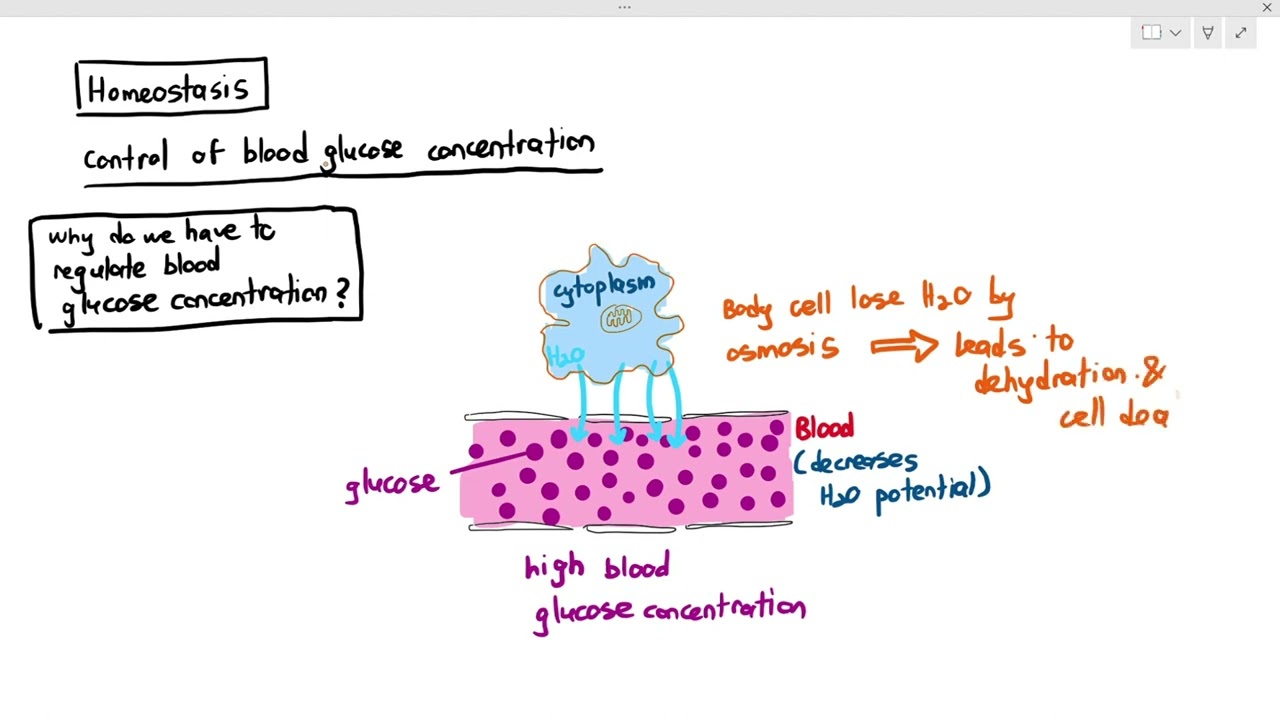 Homeostasis
control of blood glucose concentration
why do we have to
regulate blood
glucose concentration?
cytoplasm
H2O
Body cell lose H2O by
osmosis ⇒ leads to
dehydration &
cell dea
Blood
(decreases
H2O potential)
glucose
high blood
glucose concentration